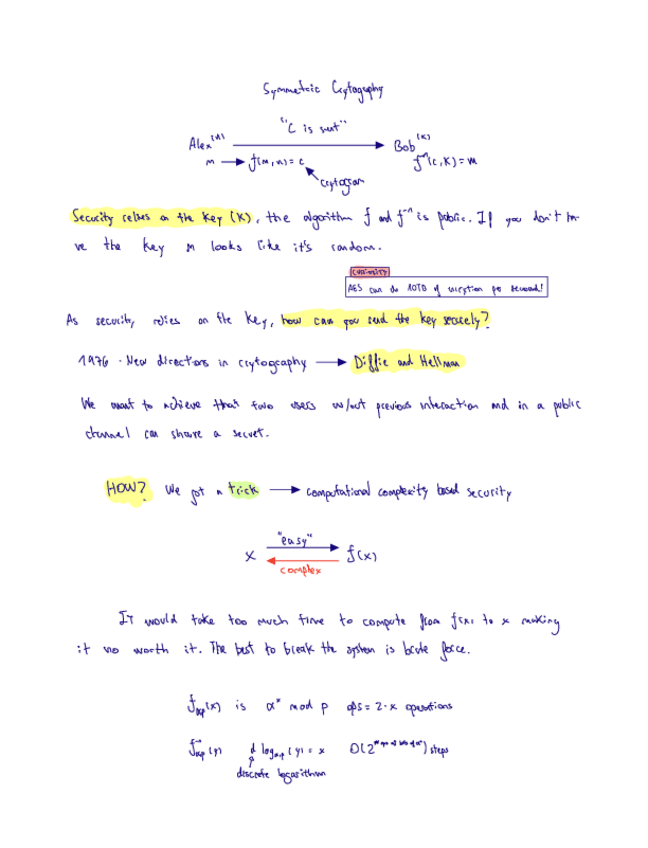 Symmetric Crytography
"C is sent"
Alex (K) Bob (K)
m → f(m,k) = c f⁻¹(c,K) = m
cryptogram
Security relies on the key (K), the algorithm f and f⁻¹ is public. If you don't ha-
ve the key m looks like it's random.
curiosity
AES can do 10TB of encryption per second!
As security relies on the key, how can you send the key securely?
1976 · New directions in crytography → Diffie and Hellman
We want to achieve that two users w/out previous interaction and in a public
channel can share a secret.
HOW? We got a trick → computational complexity based security
"easy"
x f(x)
complex
It would take too much time to compute from f(x) to x making
it no worth it. The best to break the system is brute force.
f exp (x) is α^x mod p ops = 2·x operations
f⁻¹ exp (y) d log (y) = x O(2) steps
discrete logarithm